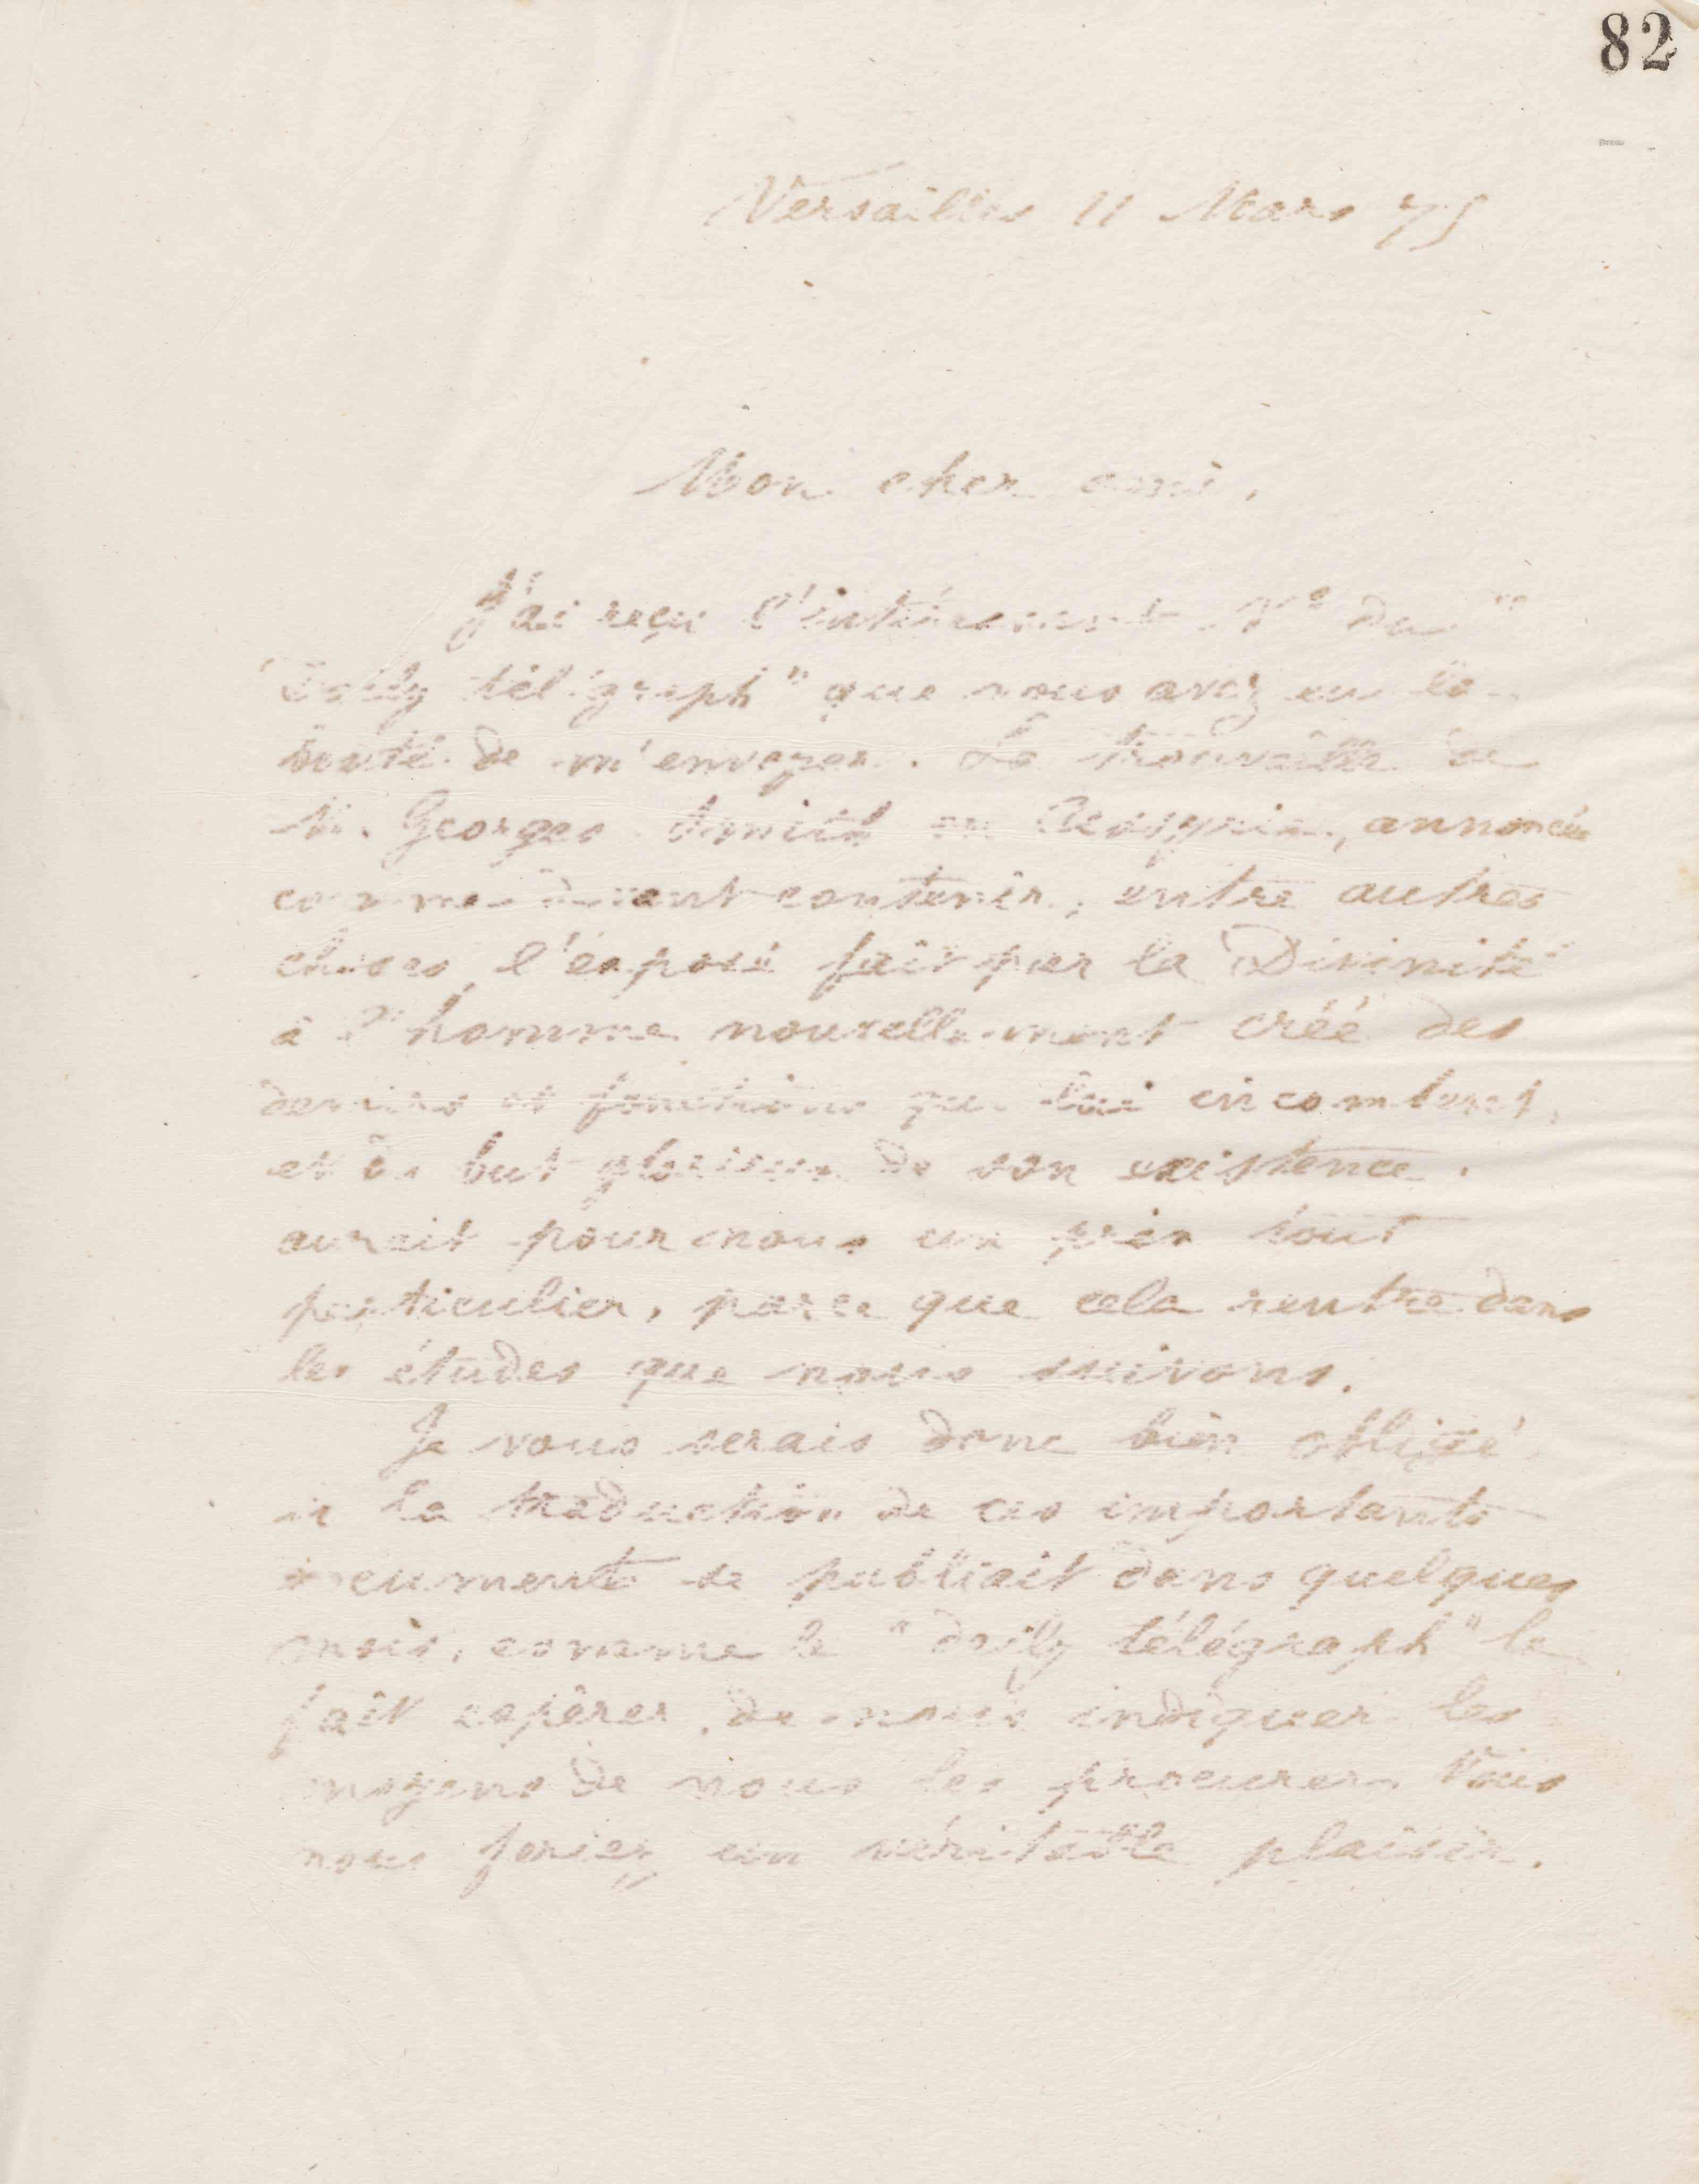 82
Versailles 11 Mars 75
Mon cher ami,
J'ai reçu l'intéressant N° du "
Daily télégraph" que vous avez eu la
bonté de m'envoyer. La trouvaille de
M. Georges Smith en Assyrie, annoncée
comme devant contenir, entre autres
choses, l'exposé fait par la Divinité
à l'homme nouvellement créé des
devoirs et fonctions qui lui incombent,
et du but glorieux de son existence.
aurait pour nous un prix tout
particulier, parce que cela rentre dans
les études que nous suivons.
Je vous serais donc bien obligé,
si la traduction de ces importants
documents se publiait dans quelques
mois, comme le "daily télégraph" le
fait espérer, de nous indiquer les
moyens de nous les procurer. Vous
nous feriez un véritable plaisir.